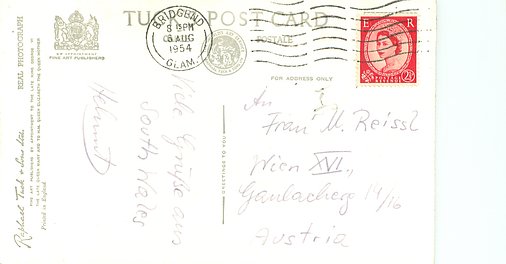 TUCK POST CARD
CARTE POSTALE
BRIDGEND
8 15PM
6 AUG
1954
GLAM.
E R
2½
FOR ADDRESS ONLY
REAL PHOTOGRAPH
BY APPOINTMENT
FINE ART PUBLISHERS
Raphael Tuck & Sons Ltd.
Printed in England
GREETINGS TO YOU
Viele Grüße aus
South Wales
Helmut
An
Frau M. Reissl
Wien XVI.,
Austria